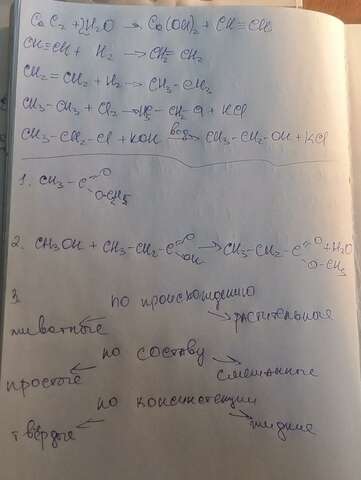 CaC₂ + 2H₂O → Ca(OH)₂ + CH≡CH
CH≡CH + H₂ → CH₂=CH₂
CH₂=CH₂ + H₂ → CH₃-CH₃
CH₃-CH₃ + Cl₂ → H₃C-CH₂Cl + HCl
CH₃-CH₂-Cl + KOH вод→ CH₃-CH₂-OH + KCl
1. CH₃-C=O O-C₂H₅
2. CH₃OH + CH₃-CH₂-C=O OH → CH₃-CH₂-C=O O-CH₃ + H₂O
3. по происхождению
животные растительные
по составу
простые смешанные
по консистенции
твёрдые жидкие